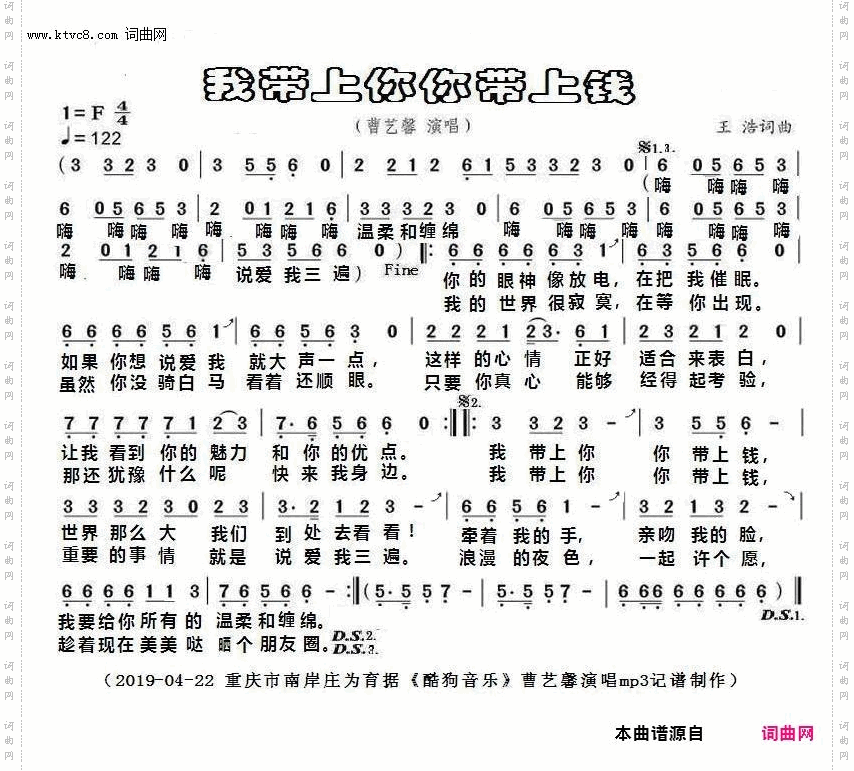 www.ktvc8.com 词曲网
我带上你你带上钱
1=F 4/4
（曹艺馨 演唱）
王 浩词曲
♩=122
𝄋1.3.
(3 3 2 3 0 | 3 5 5 6 0 | 2 2 1 2 6 5 3 3 2 3 0 | 6 0 5 6 5 3 |
（嗨 嗨嗨 嗨
6 0 5 6 5 3 | 2 0 1 2 1 6 | 3 3 3 2 3 0 | 6 0 5 6 5 3 | 6 0 5 6 5 3 |
嗨 嗨嗨 嗨 嗨 嗨嗨 嗨 温柔和缠绵 嗨 嗨嗨 嗨 嗨 嗨嗨 嗨
2 0 1 2 1 6 | 5 3 5 6 6 0 ) ‖: 6 6 6 6 6 3 3 1 | 6 3 5 6 6 0 |
嗨 嗨嗨 嗨 说爱 我三 遍） Fine 你的 眼神 像放电，在把 我 催眠。
我的 世界 很寂寞，在等 你 出现。
6 6 6 6 5 6 1 | 6 6 5 6 3 0 | 2 2 2 1 2 3· 6 1 | 2 2 1 2 2 0 |
如果 你想 说爱 我 就大 声一 点， 这样 的心 情 正好 适合 来表 白，
虽然 你没 骑白 马 看着 还顺 眼。 只要 你真 心 能够 经得 起考 验，
𝄋2.
7 7 7 7 7 1 2 3 | 7· 6 5 6 6 0 :‖ 3 3 2 3 - | 3 5 5 6 - |
让我 看到 你的 魅力 和 你的 优点。 我 带上 你 你 带上 钱，
那还 犹豫 什么 呢 快 来我 身边。 我 带上 你 你 带上 钱，
3 3 3 2 3 0 | 3· 2 1 2 2 3 - | 6 6 5 6 1 - | 3 2 1 2 2 - |
世界 那么 大 我们 到 处去 看看！ 牵着 我的 手， 亲吻 我的 脸，
重要 的事 情 就是 说 爱我 三遍。 浪漫 的夜 色， 一起 许个 愿，
6 6 6 6 1 1 3 | 7 6 5 6 6 - :‖ (5· 5 5 7 - | 5· 5 5 7 - | 6 6 6 6 6 6 6 6 6 ) ‖
我要给你所有的 温柔和缠绵。
D.S.1.
趁着现在美美哒 晒个朋友圈。D.S.2.
D.S.3.
（2019-04-22 重庆市南岸庄为育据《酷狗音乐》曹艺馨演唱mp3记谱制作）
本曲谱源自 词曲网